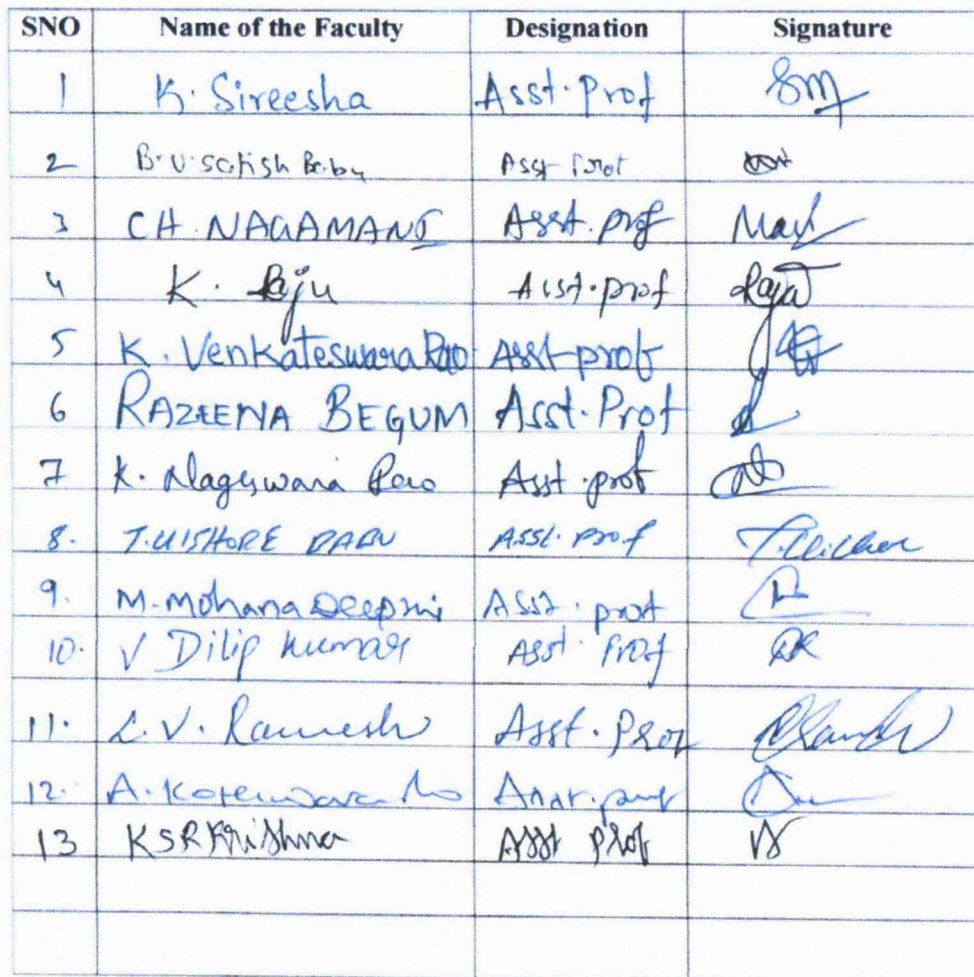 SNO Name of the Faculty Designation Signature
1 K. Sireesha Asst. Prof
2 B.V. Satish Babu Asst Prof
3 CH. NAGAMANI Asst. prof Mani
4 K. Raju Asst. prof Raju
5 K. Venkateswara Rao Asst-prof
6 RAZEENA BEGUM Asst. Prof
7 K. Nageswara Rao Asst. prof
8. T. KISHORE BABU Asst. Prof
9. M. Mohana Deepthi Asst. prof
10. V Dilip Kumar Asst. Prof
11. L.V. Ramesh Asst. Prof
12. A. Koteswara Rao Asst. prof
13 KSR Krishna Asst Prof